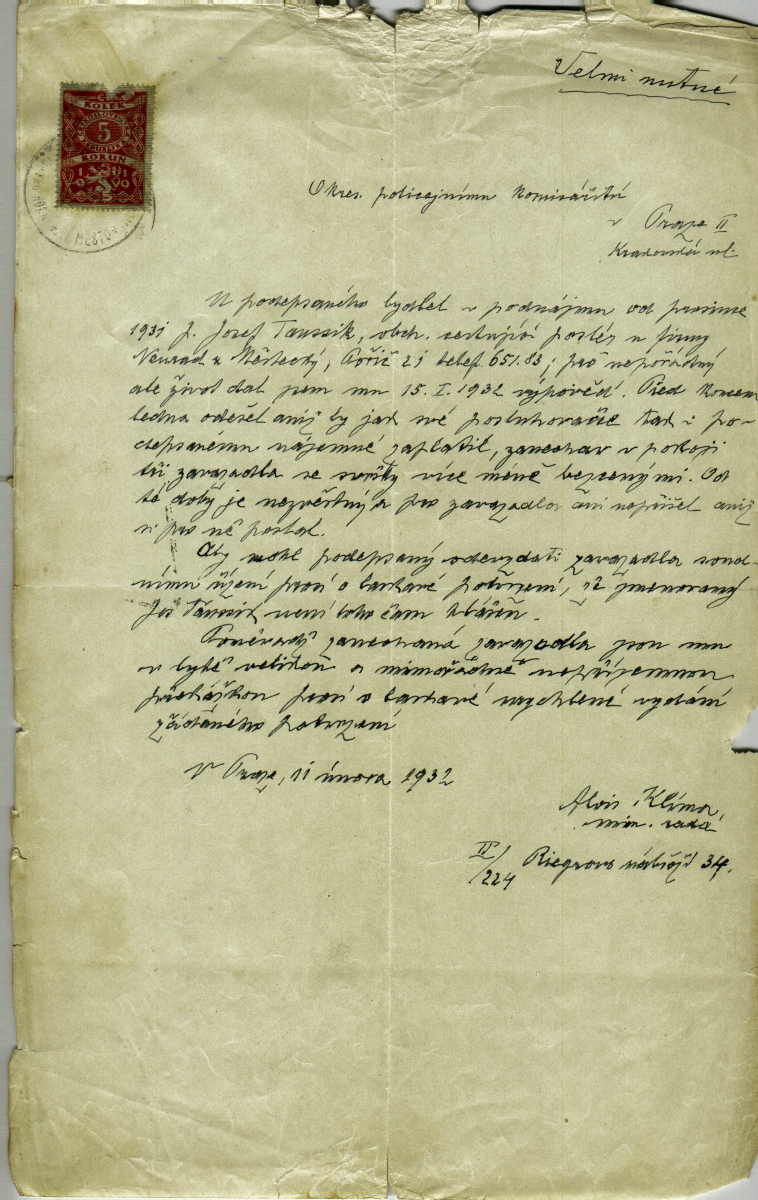 Velmi nutné
KOLEK
5
KORUN
Okres. policejnímu komisařství
v Praze II
Krakovská ul.
U podepsaného bydlel v podnájmu od prosince
1931 p. Josef Taussik, obch. cestující posléz u firmy
a Městecký, Poříč 21 telef. 651.83; pro nepořádný
ale život dal jsem mu 15. I. 1932 výpověď. Před koncem
ledna odešel aniž by jak své posluhovačce tak i po-
depsanému nájemné zaplatil, zanechav v pokoji
tři zavazadla se svršky více méně bezcenými. Od
té doby je nezvěstný a pro zavazadla ani nepřišel aniž
si pro ně poslal.
Aby mohl podepsaný odevzdati zavazadla soud-
nímu řízení prosí o laskavé potvrzení, že jmenovaný
Jos Taussik není toho času hlášen.
Poněvadž zanechaná zavazadla jsou mu
v bytě velikou a mimořádně nepříjemnou
překážkou prosí o laskavé urychlené vydání
žádaného potvrzení
V Praze, 11 února 1932
Alois Klíma,
min. rada
II/224 Riegrovo nábřeží 34.